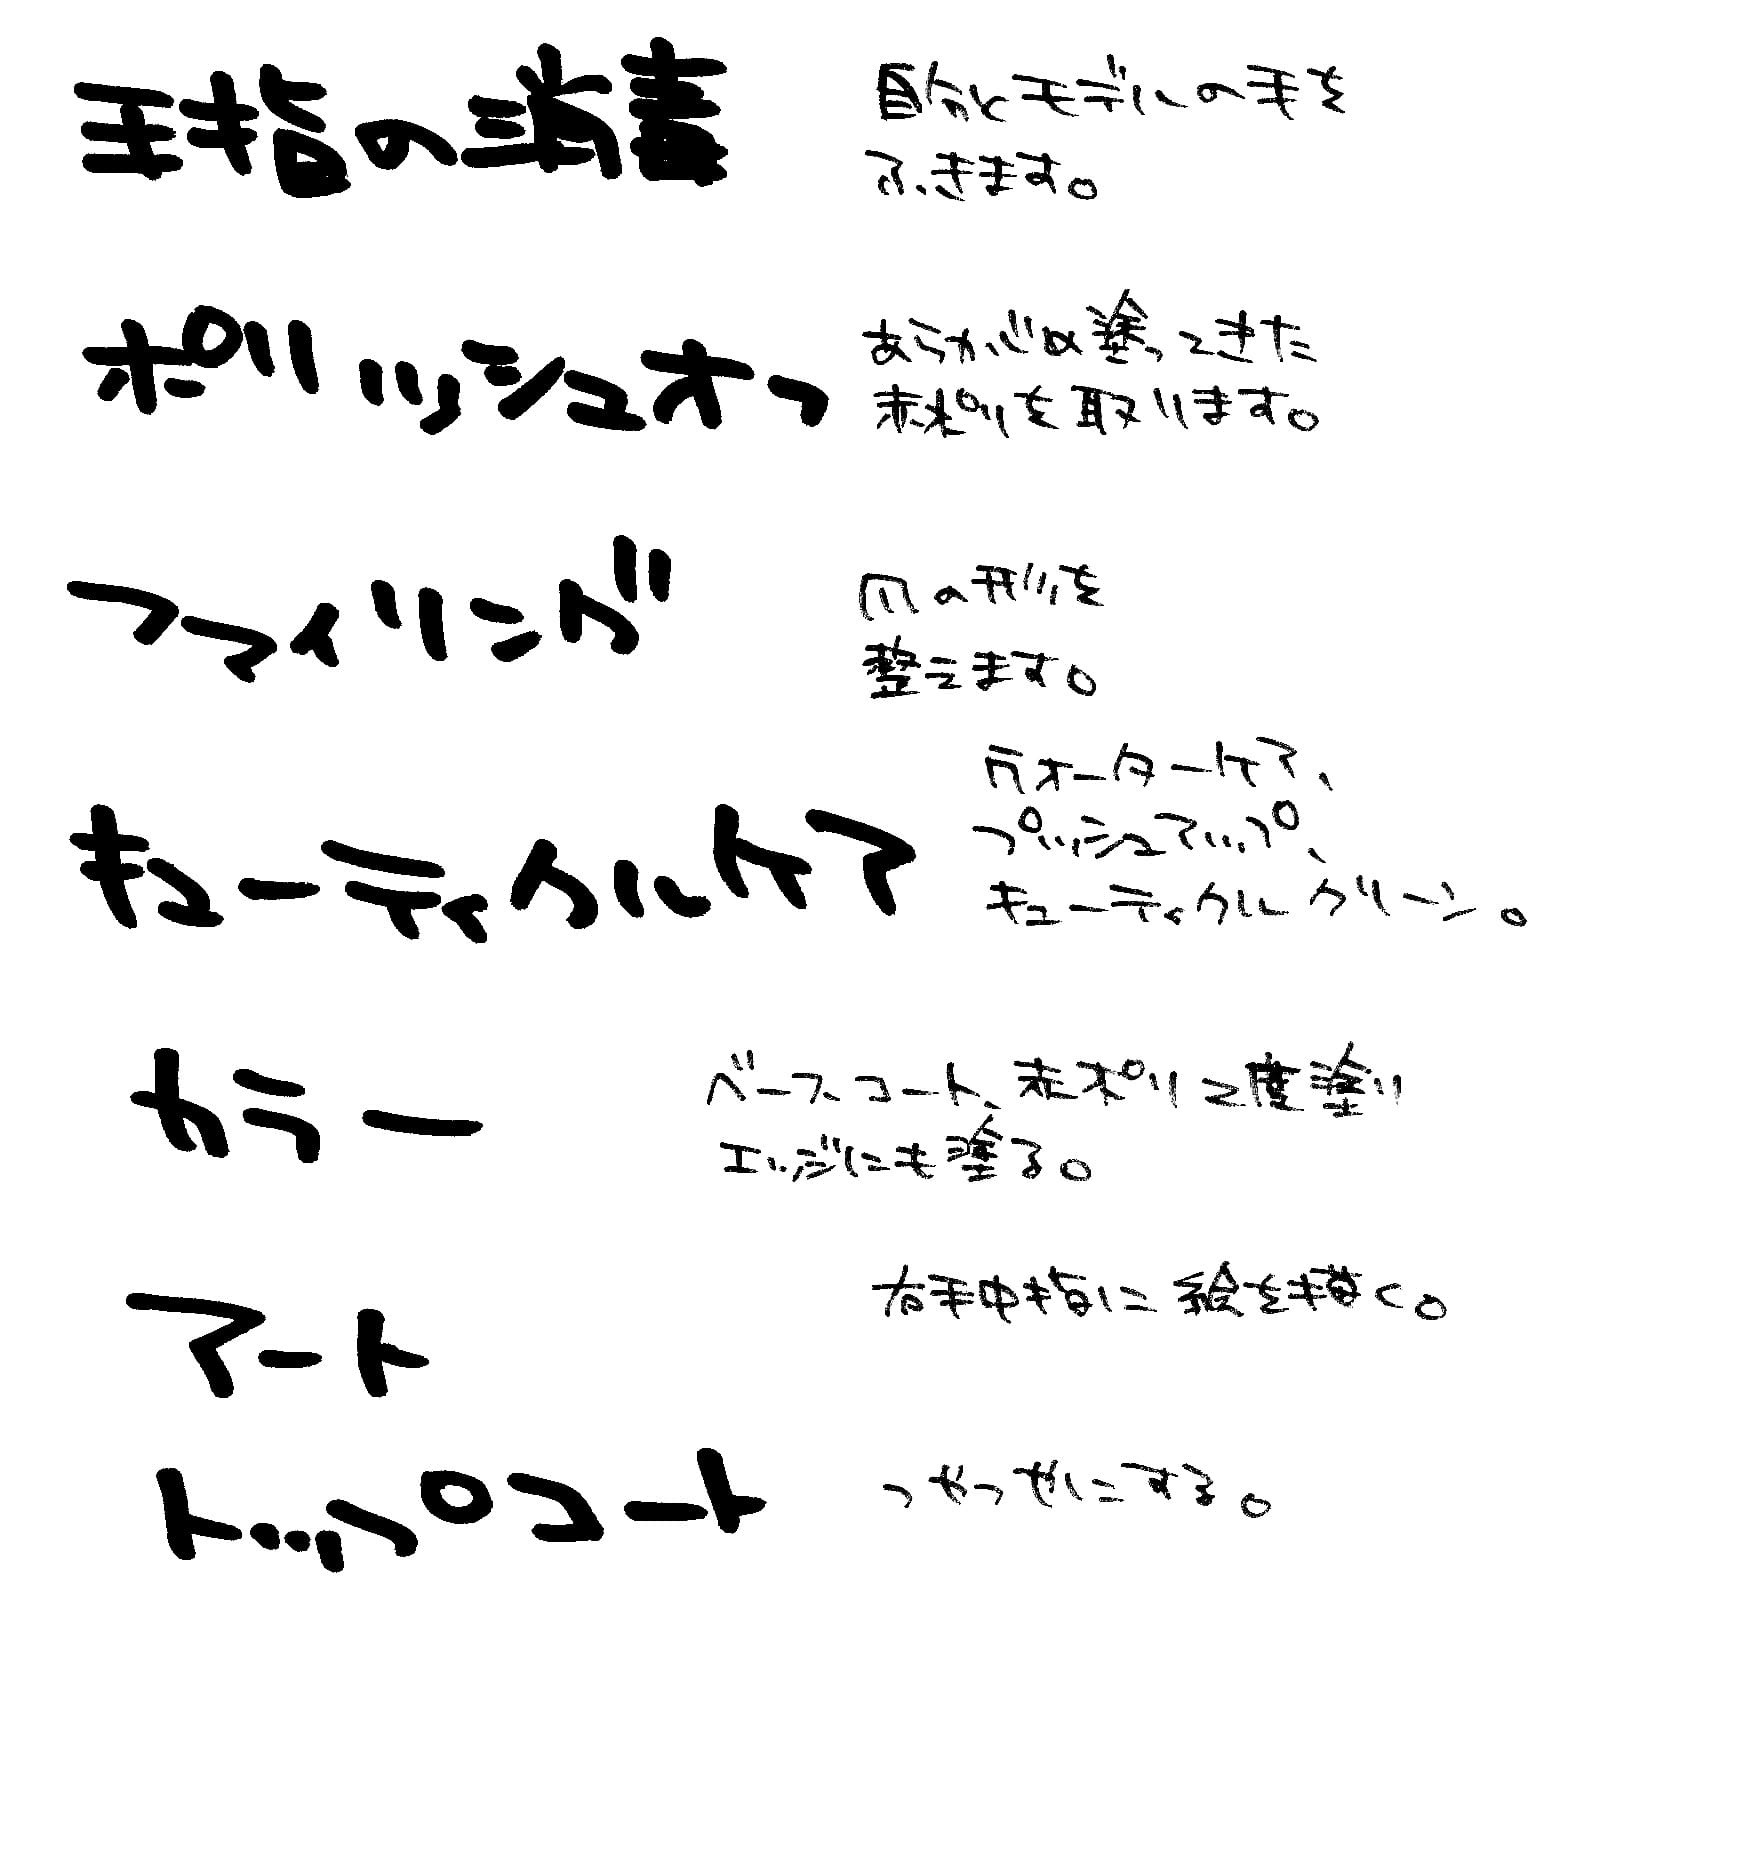 手指の消毒
自分とモデルの手を
ふきます。
ポリッシュオフ
あらかじめ塗ってきた
赤ポリを取ります。
ファイリング
爪の形を
整えます。
キューティクルケア
ウォーターケア、
プッシュアップ、
キューティクルクリーン。
カラー
ベースコート、赤ポリ2度塗り
エッジにも塗る。
アート
右手中指に絵を描く。
トップコート
つやつやにする。